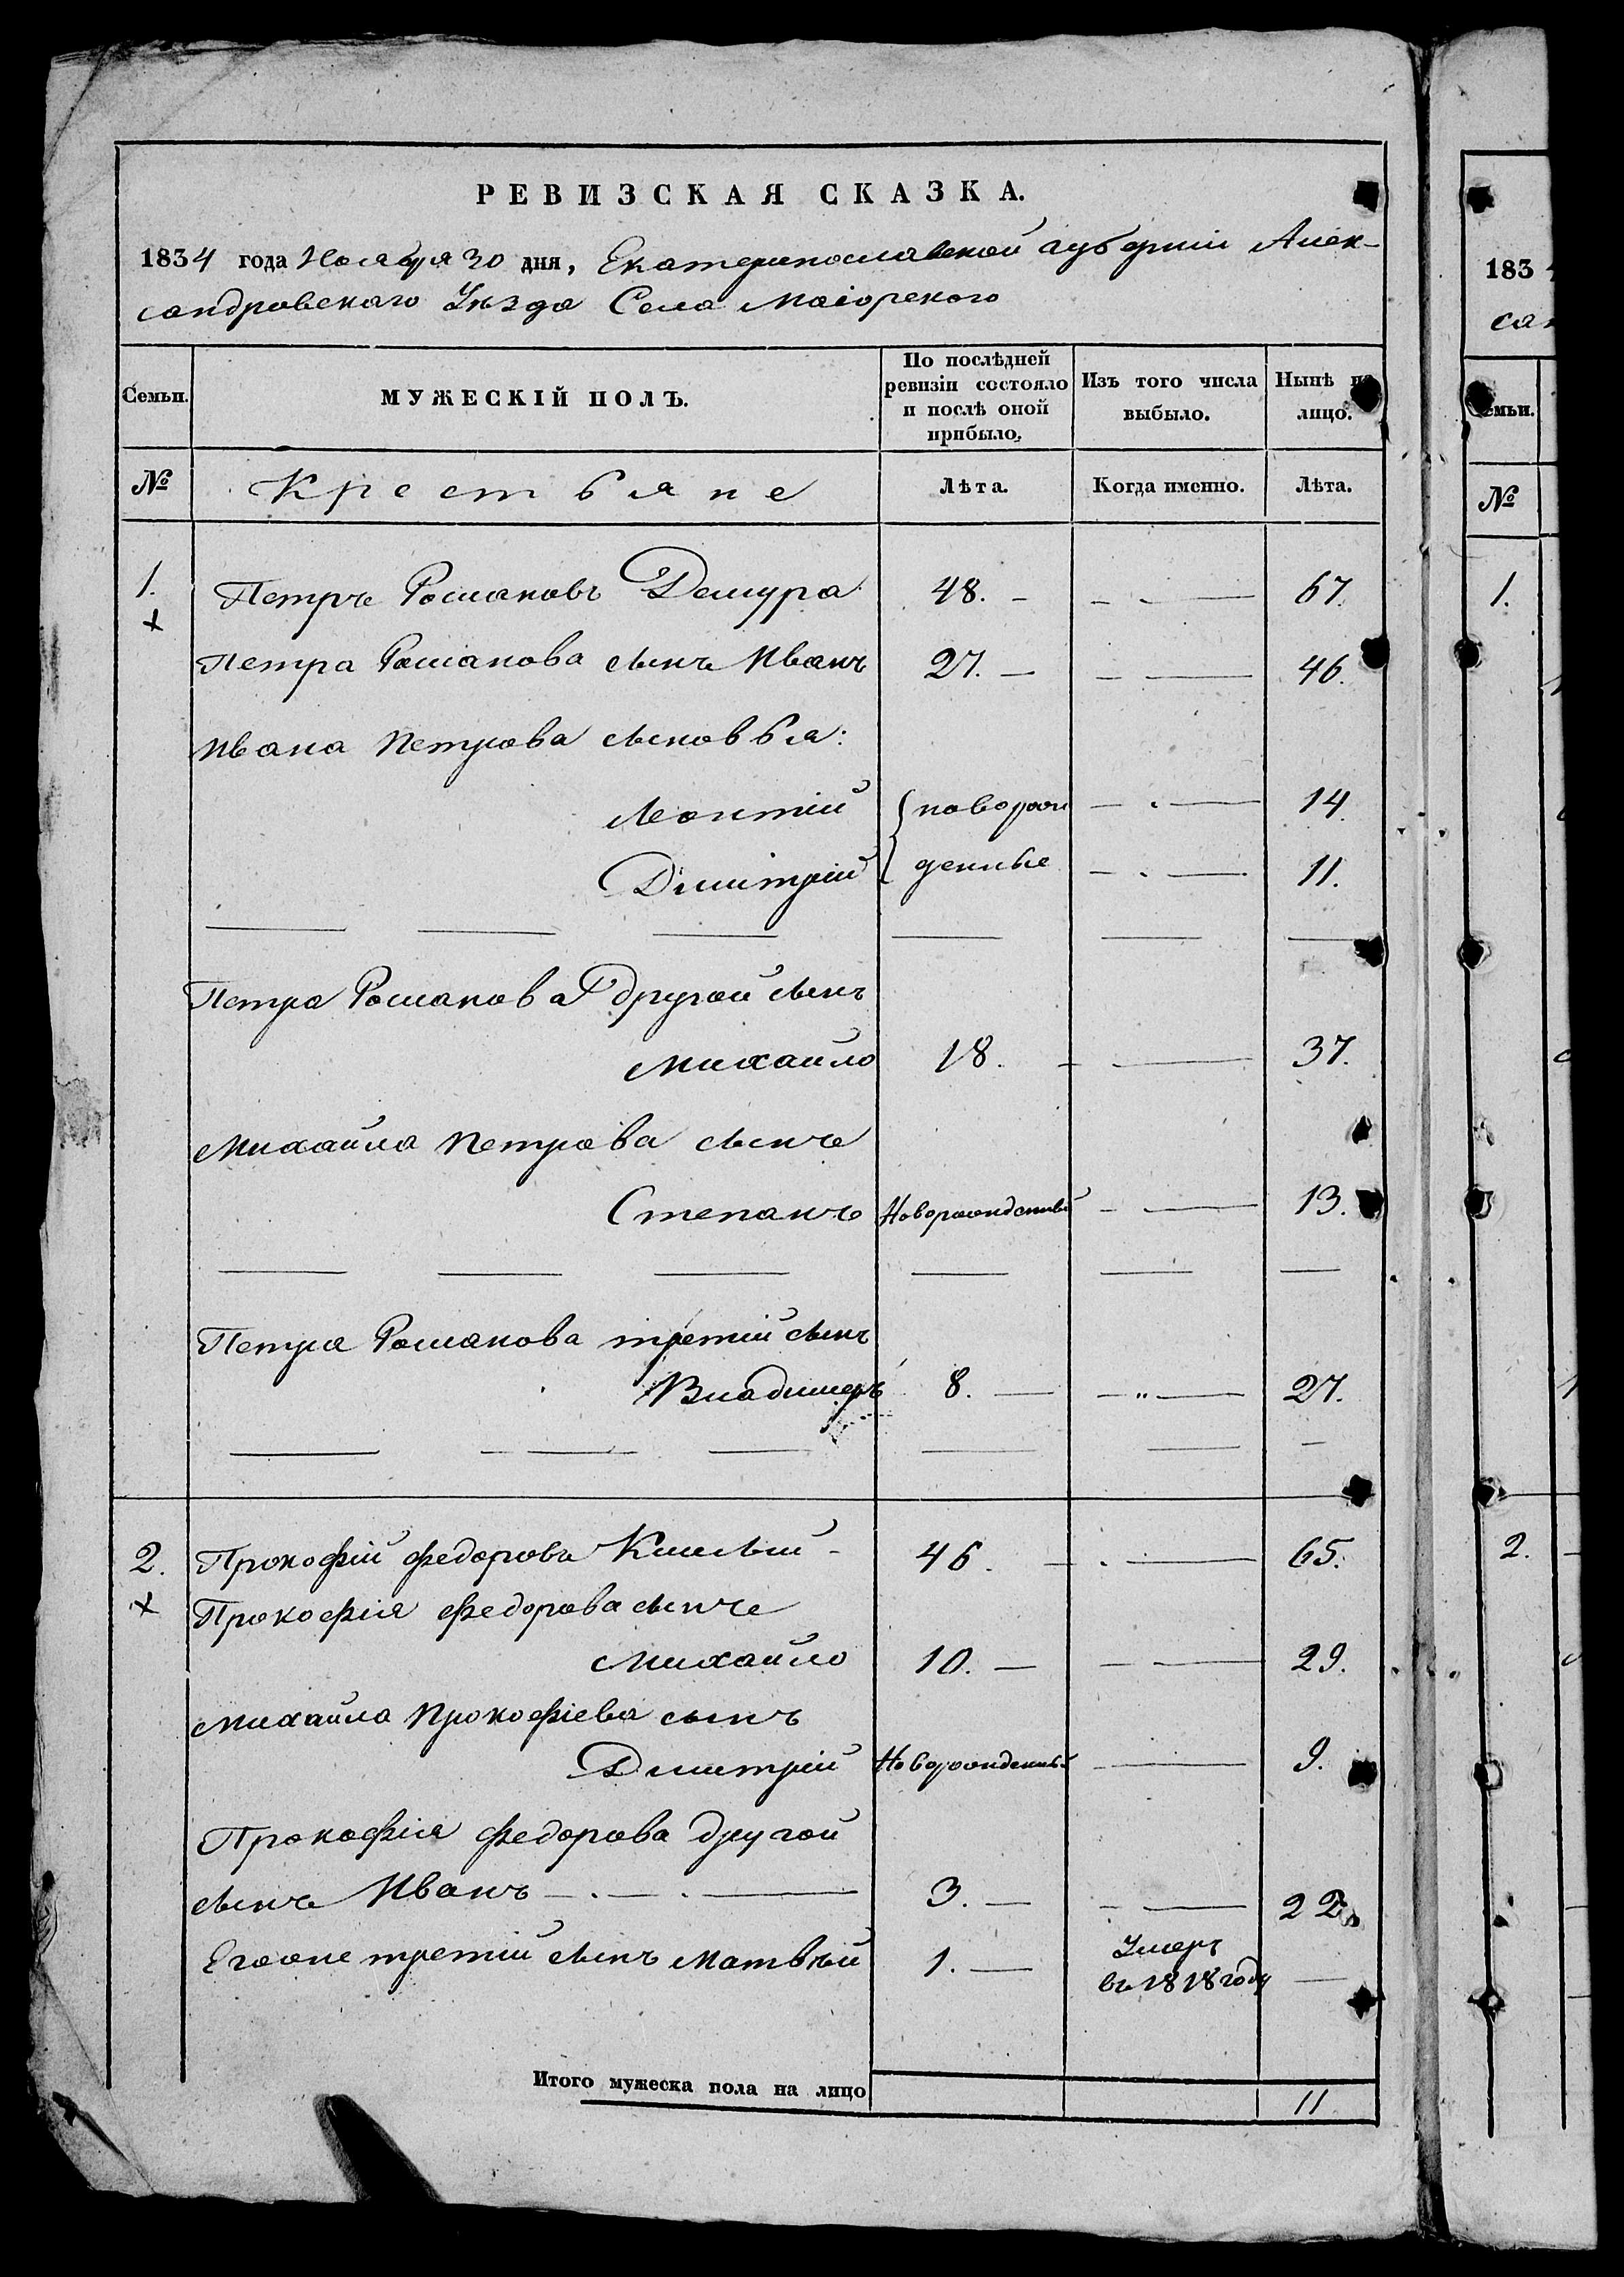 РЕВИЗСКАЯ СКАЗКА.
1834 года Ноября 30 дня, Екатеринославской губернии Алек-
сандровскаго Уѣзда Села Маіорского
Семьи.
МУЖЕСКІЙ ПОЛЪ.
По послѣдней ревизіи состояло и послѣ оной прибыло.
Изъ того числа выбыло.
Нынѣ на лицо.
№ Крестьяне Лѣта. Когда именно. Лѣта.
1. Петръ Романовъ Демура 48. — — 67.
х
Петра Романова сынъ Иванъ 27. — — 46.
Ивана Петрова сыновья:
Леонтій { новорож — 14
Дмитрій { денные — 11.
Петра Романова другой сынъ
Михайло 18. — 37.
Михайла Петрова сынъ
Степанъ Новорожденный — 13.
Петра Романова третій сынъ
Владимеръ 8. — — 27.
2. Прокофій Федоровъ — 46. — 65.
х Прокофія Федорова сынъ
Михайло 10. — — 29.
Михайла Прокофіева сынъ
Дмитрій Новорожденный — 9.
Прокофія Федорова другой
сынъ Иванъ — 3. — — 22.
Егоже третій сынъ Матвѣй 1. — Умеръ
въ 1818 году —
Итого мужеска пола на лицо 11
183
са
мьи.
№
1.
2.